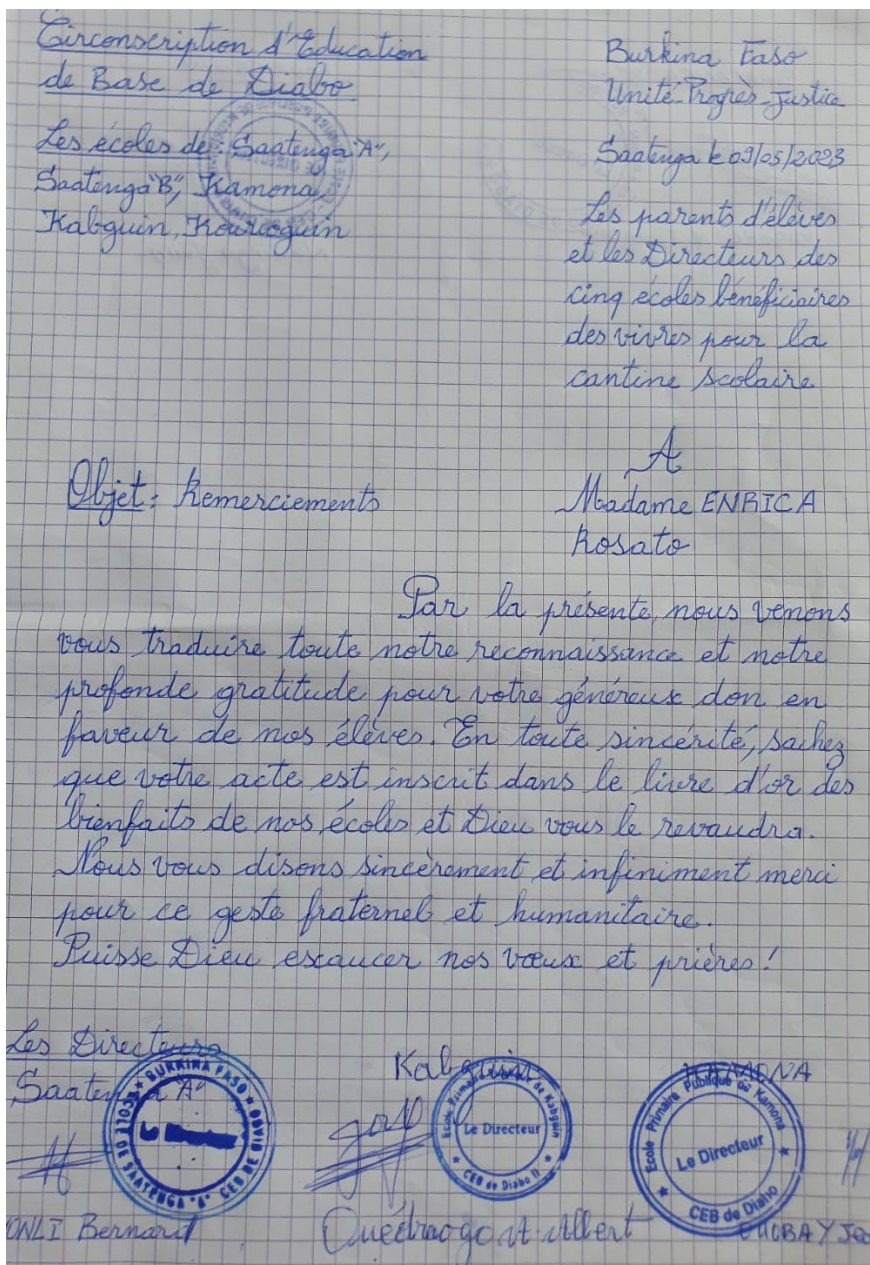 Circonscription d'Education
de Base de Diabo
Les écoles de Saatenga "A",
Saatenga "B", Kamona,
Kabguin, Kouroguin
Burkina Faso
Unité-Progrès-Justice
Saatenga le 09/05/2023
Les parents d'élèves
et les Directeurs des
cinq écoles bénéficiaires
des vivres pour la
cantine scolaire
A
Madame ENRICA
Rosato
Objet: Remerciements
Par la présente, nous venons
vous traduire toute notre reconnaissance et notre
profonde gratitude pour votre généreux don en
faveur de nos élèves. En toute sincérité, sachez
que votre acte est inscrit dans le livre d'or des
bienfaits de nos écoles et Dieu vous le revaudra.
Nous vous disons sincèrement et infiniment merci
pour ce geste fraternel et humanitaire.
Puisse Dieu escaucer nos vœux et prières!
Les Directeurs
Saatenga "A"
BURKINA FASO
ECOLE DE SAATENGA "A" CEB DE DIABO
ONLI Bernard
Kabguin
Ecole Primaire Publique de Kabguin
Le Directeur
CEB de Diabo II
Ouédraogo Albert
KAMONA
Ecole Primaire Publique de Kamona
Le Directeur
CEB de Diabo